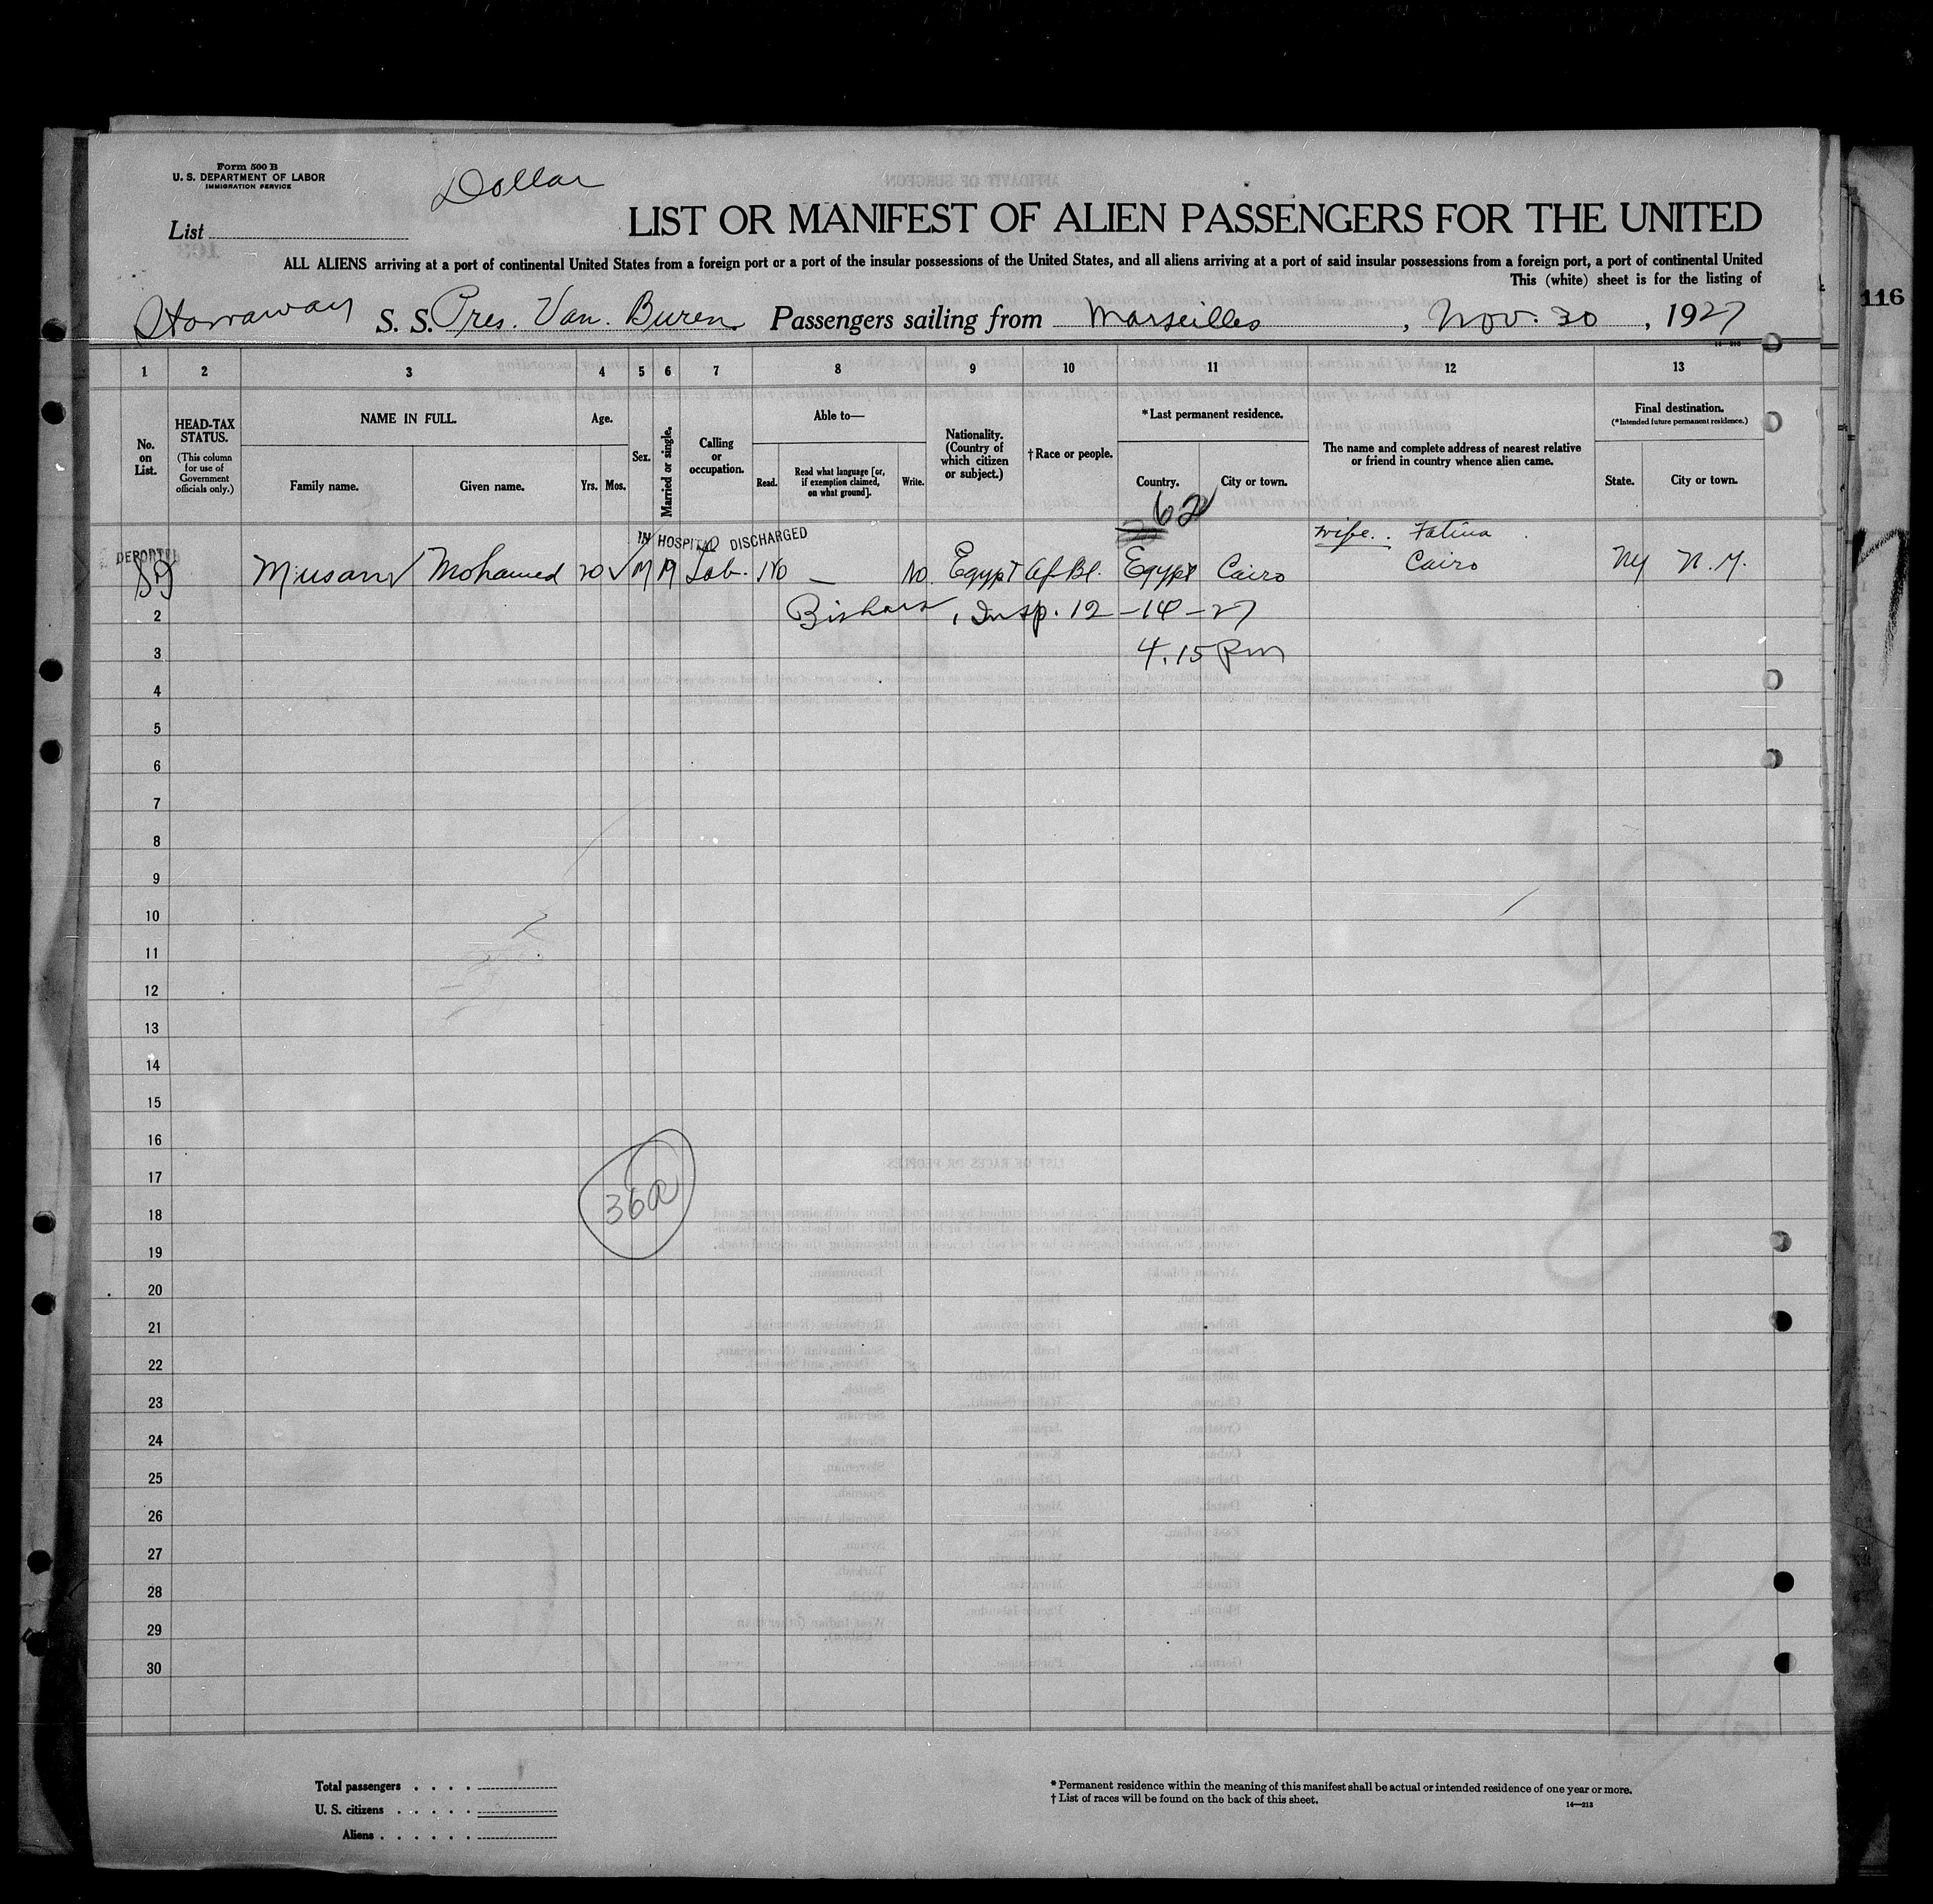 Form 500 B
U. S. DEPARTMENT OF LABOR
IMMIGRATION SERVICE
Dollar
List
LIST OR MANIFEST OF ALIEN PASSENGERS FOR THE UNITED
ALL ALIENS arriving at a port of continental United States from a foreign port or a port of the insular possessions of the United States, and all aliens arriving at a port of said insular possessions from a foreign port, a port of continental United
This (white) sheet is for the listing of
Stowaway S. S. Pres. Van. Buren Passengers sailing from Marseilles, Nov. 30, 1927
116
1 2 3 4 5 6 7 8 9 10 11 12 13
No. on List.
HEAD-TAX STATUS.
(This column for use of Government officials only.)
NAME IN FULL.
Family name. Given name.
Age.
Yrs. Mos.
Sex.
Married or single.
Calling or occupation.
Able to—
Read. Read what language [or, if exemption claimed, on what ground]. Write.
Nationality. (Country of which citizen or subject.)
†Race or people.
*Last permanent residence.
Country. City or town.
The name and complete address of nearest relative or friend in country whence alien came.
Final destination.
(*Intended future permanent residence.)
State. City or town.
62
IN HOSPITAL DISCHARGED
wife. Fatima
DEPORTED
Musan Mohamed 20 M M Lab. No — No. Egypt Af. Bl. Egypt Cairo Cairo NY N.Y.
2 Bishara, Insp. 12-14-27
3 4.15 Pm
4
5
6
7
8
9
10
11
12
13
14
15
16
17
18
36a
19
20
21
22
23
24
25
26
27
28
29
30
Total passengers . . . .
U. S. citizens . . . . .
Aliens . . . . . .
* Permanent residence within the meaning of this manifest shall be actual or intended residence of one year or more.
† List of races will be found on the back of this sheet.
14—213